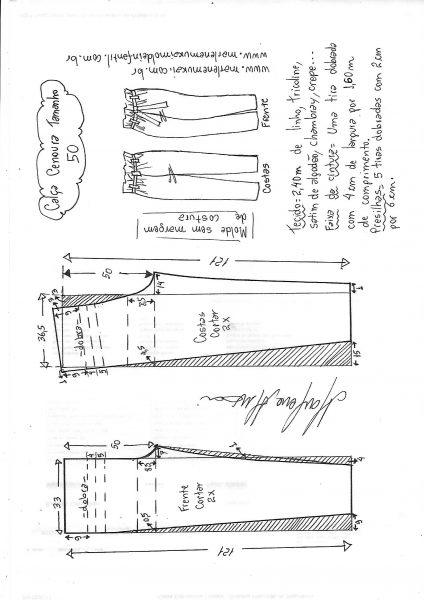 Calça Cenoura Tamanho
50
www.marlenemukai.com.br
www.marlenemukaimoldeinfantil.com.br
Frente
Costas
Molde sem margem
de costura
Tecido = 2,40m de linho, tricoline,
satim de algodão, chambray, crepe...
Faixa de cintura = Uma tira dobrada
com 4 cm de largura por 1,60 m
de comprimento.
Presilhas = 5 tiras dobradas com 2 cm
por 6 cm.
121
50
14
1
36,5
=dobra=
Costas
Cortar
2x
15
121
50
33
=dobra=
Frente
Cortar
2x
4
6
121